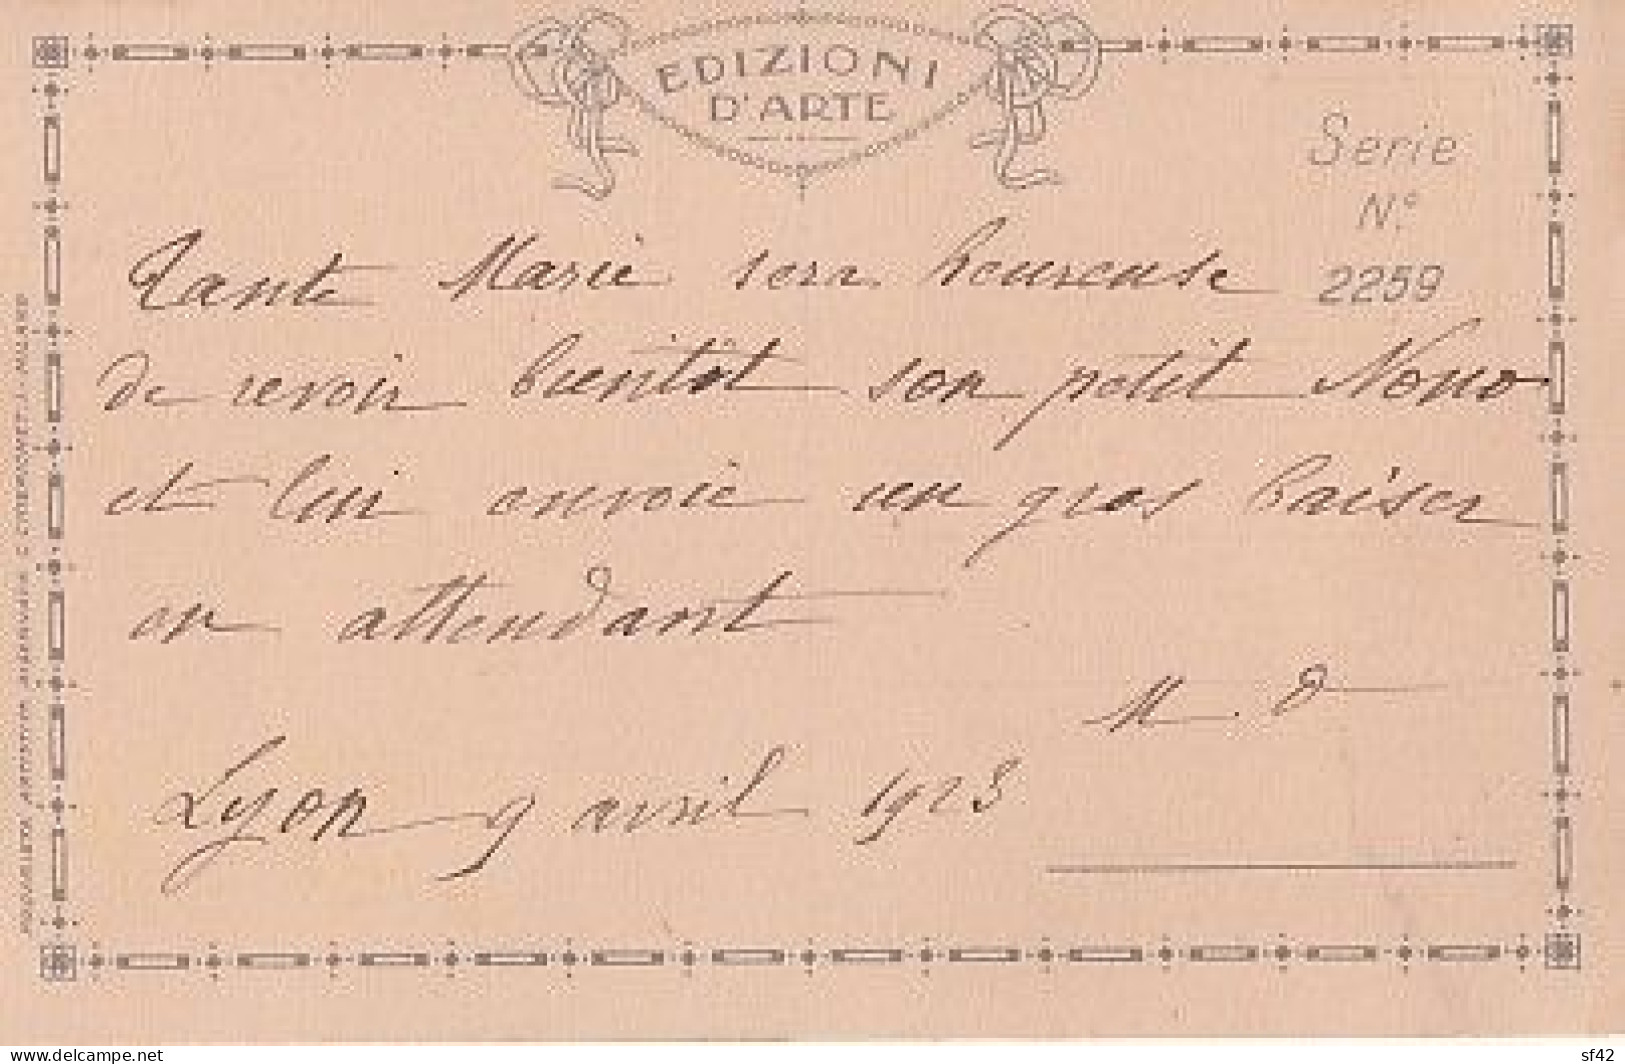 EDIZIONI
D'ARTE
Serie
N.º
2259
Tante Marie sera heureuse
de revoir bientôt son petit Nono
et lui envoie un gros baiser
en attendant
M. D
Lyon 9 avril 1923
delcampe.net
sf42